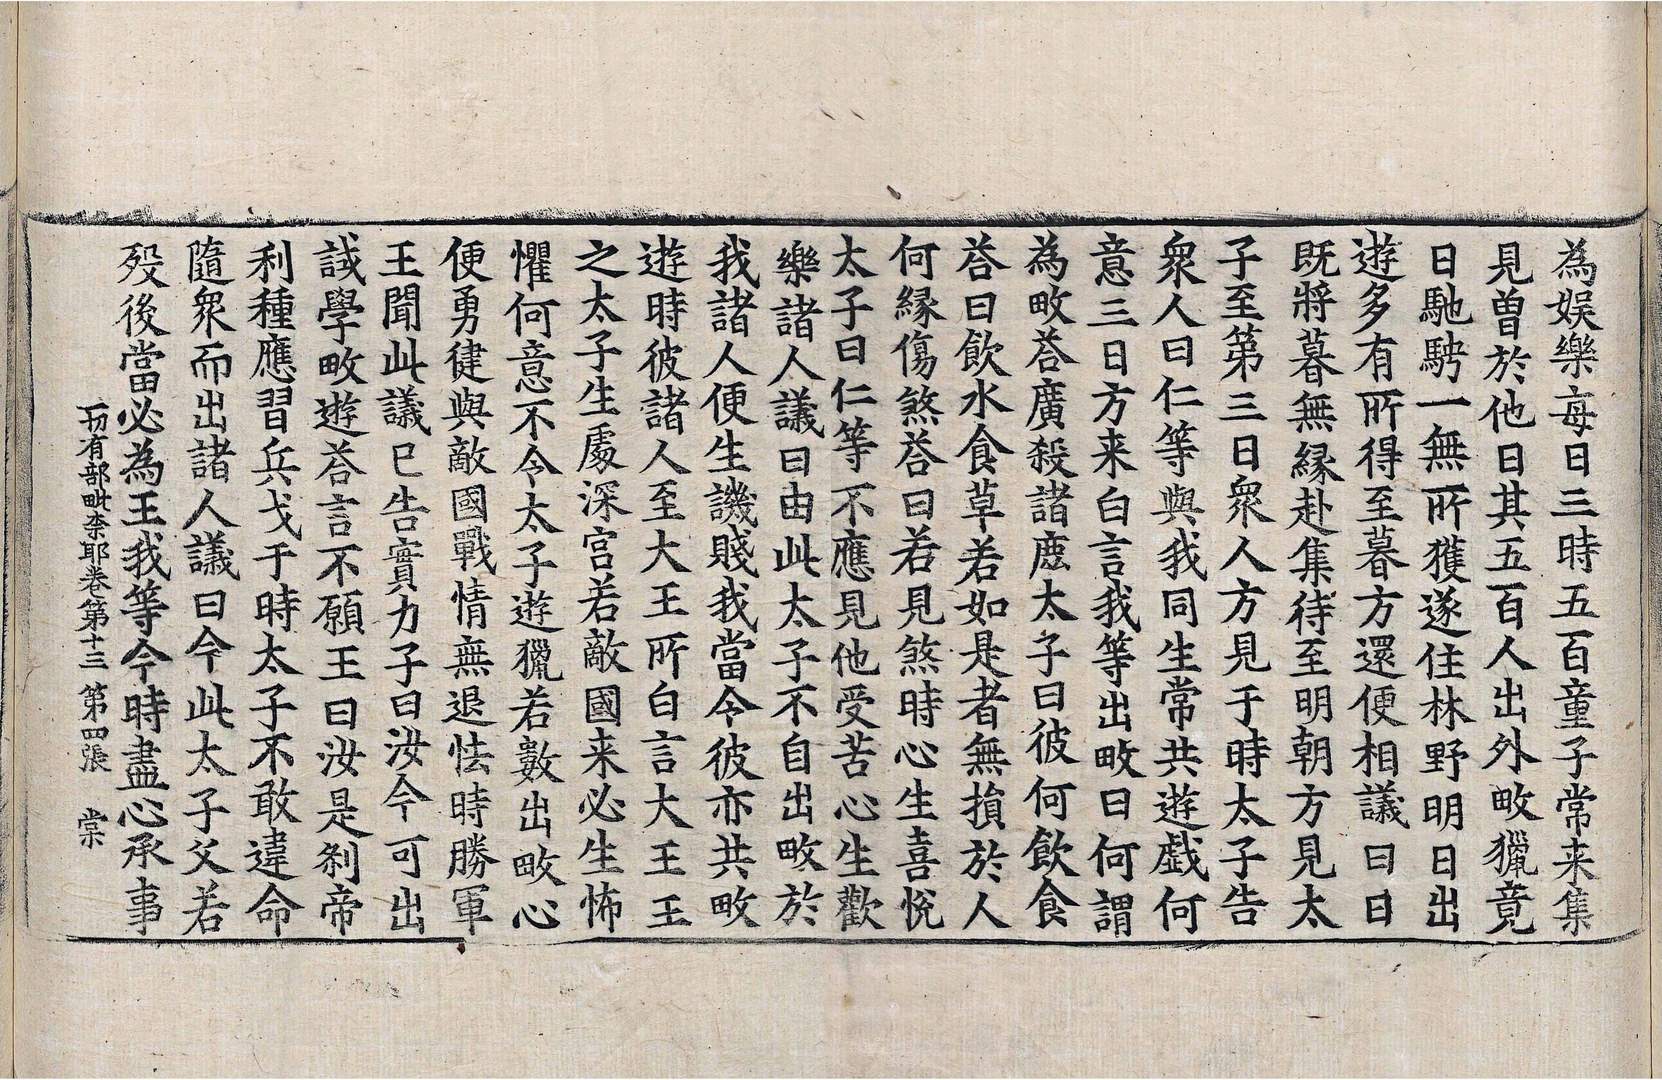 為娛樂每日三時五百童子常来集
見曽於他日其五百人出外畋獵竟
日馳騁一無所獲遂住林野明日出
遊多有所得至暮方還便相議曰日
既將暮無縁赴集待至明朝方見太
子至第三日衆人方見于時太子告
衆人曰仁等與我同生常共遊戱何
意三日方来白言我等出畋曰何謂
為畋荅廣殺諸鹿太子曰彼何飲食
荅曰飲水食草若如是者無損於人
何縁傷煞荅曰若見煞時心生喜悅
太子曰仁等不應見他受苦心生歡
樂諸人議曰由此太子不自出畋於
我諸人便生譏賤我當令彼亦共畋
遊時彼諸人至大王所白言大王王
之太子生處深宮若敵國来必生怖
懼何意不令太子遊獵若數出畋心
便勇徤與敵國戰情無退怯時勝軍
王聞此議已告實力子曰汝今可出
試學畋遊荅言不願王曰汝是刹帝
利種應習兵戈于時太子不敢違命
隨衆而出諸人議曰今此太子父若
歿後當必為王我等今時盡心承事
一切有部毗柰耶卷第十三 第四張 棠